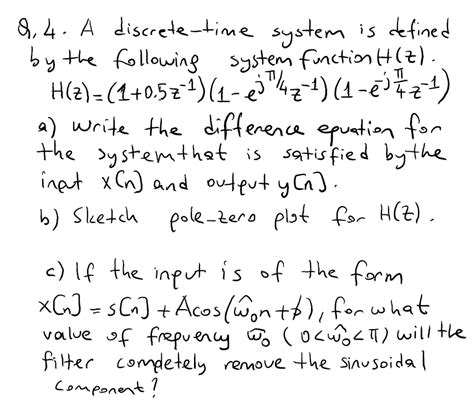 Q.4. A discrete-time system is defined
by the following system function H(z).
H(z)=(1+0.5z⁻¹)(1-e^{jπ/4}z⁻¹)(1-e^{-jπ/4}z⁻¹)
a) Write the difference equation for
the system that is satisfied by the
input x[n] and output y[n].
b) Sketch pole-zero plot for H(z).
c) If the input is of the form
x[n] = s[n] + Acos(ω̂₀n+ϕ), for what
value of frequency ω̂₀ (0<ω̂₀<π) will the
filter completely remove the sinusoidal
component?